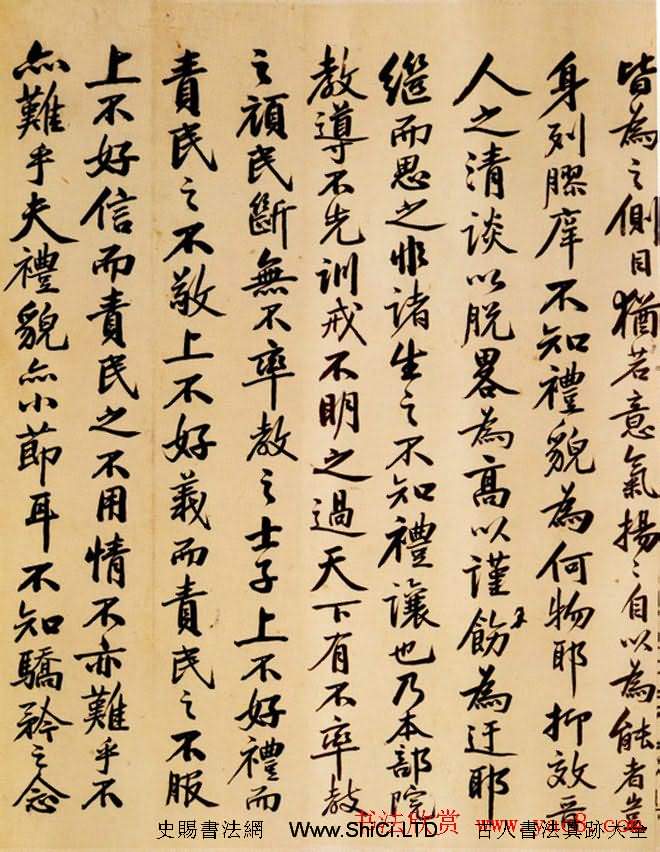 皆為之側目猶若意氣揚〻自以為能者豈
身列膠庠不知禮貌為何物耶抑效晉
人之清談以脫畧為高以謹飭為迂耶
繼而思之非諸生之不知禮讓也乃本部院
教導不先訓戒不明之過天下有不率教
之頑民斷無不率教之士子上不好禮而
責民之不敬上不好義而責民之不服
上不好信而責民之不用情不亦難乎不
亦難乎夫禮貌亦小節耳不知驕矜之念
史賜書法網 Www.ShiCi.LTD 古人書法真跡大全